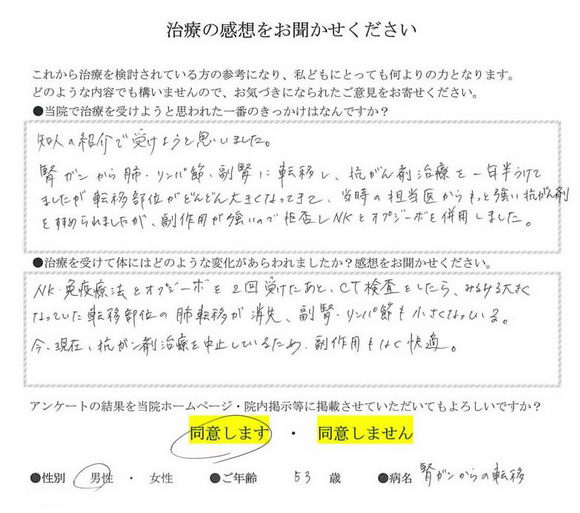 治療の感想をお聞かせください
これから治療を検討されている方の参考になり、私どもにとっても何よりの力となります。
どのような内容でも構いませんので、お気づきになられたご意見をお寄せください。
●当院で治療を受けようと思われた一番のきっかけはなんですか？
知人の紹介で受けようと思いました。
腎ガンから肺・リンパ節・副腎に転移し、抗がん剤治療を一年半うけて
ましたが転移部位がどんどん大きくなってきて、当時の担当医からもっと強い抗がん剤
を勧められましたが、副作用が強いので拒否しNKとオプジーボを併用しました。
●治療を受けて体にはどのような変化があらわれましたか？感想をお聞かせください。
NK・免疫療法とオプジーボを2回受けたあと、CT検査をしたら、みるみる大きく
なっていた転移部位の肺転移が消失、副腎・リンパ節も小さくなっいる。
今、現在、抗ガン剤治療を中止しているため、副作用もなく快適。
アンケートの結果を当院ホームページ・院内掲示等に掲載させていただいてもよろしいですか？
同意します ・ 同意しません
●性別 男性 ・ 女性 ●ご年齢 53 歳 ●病名 腎ガンからの転移